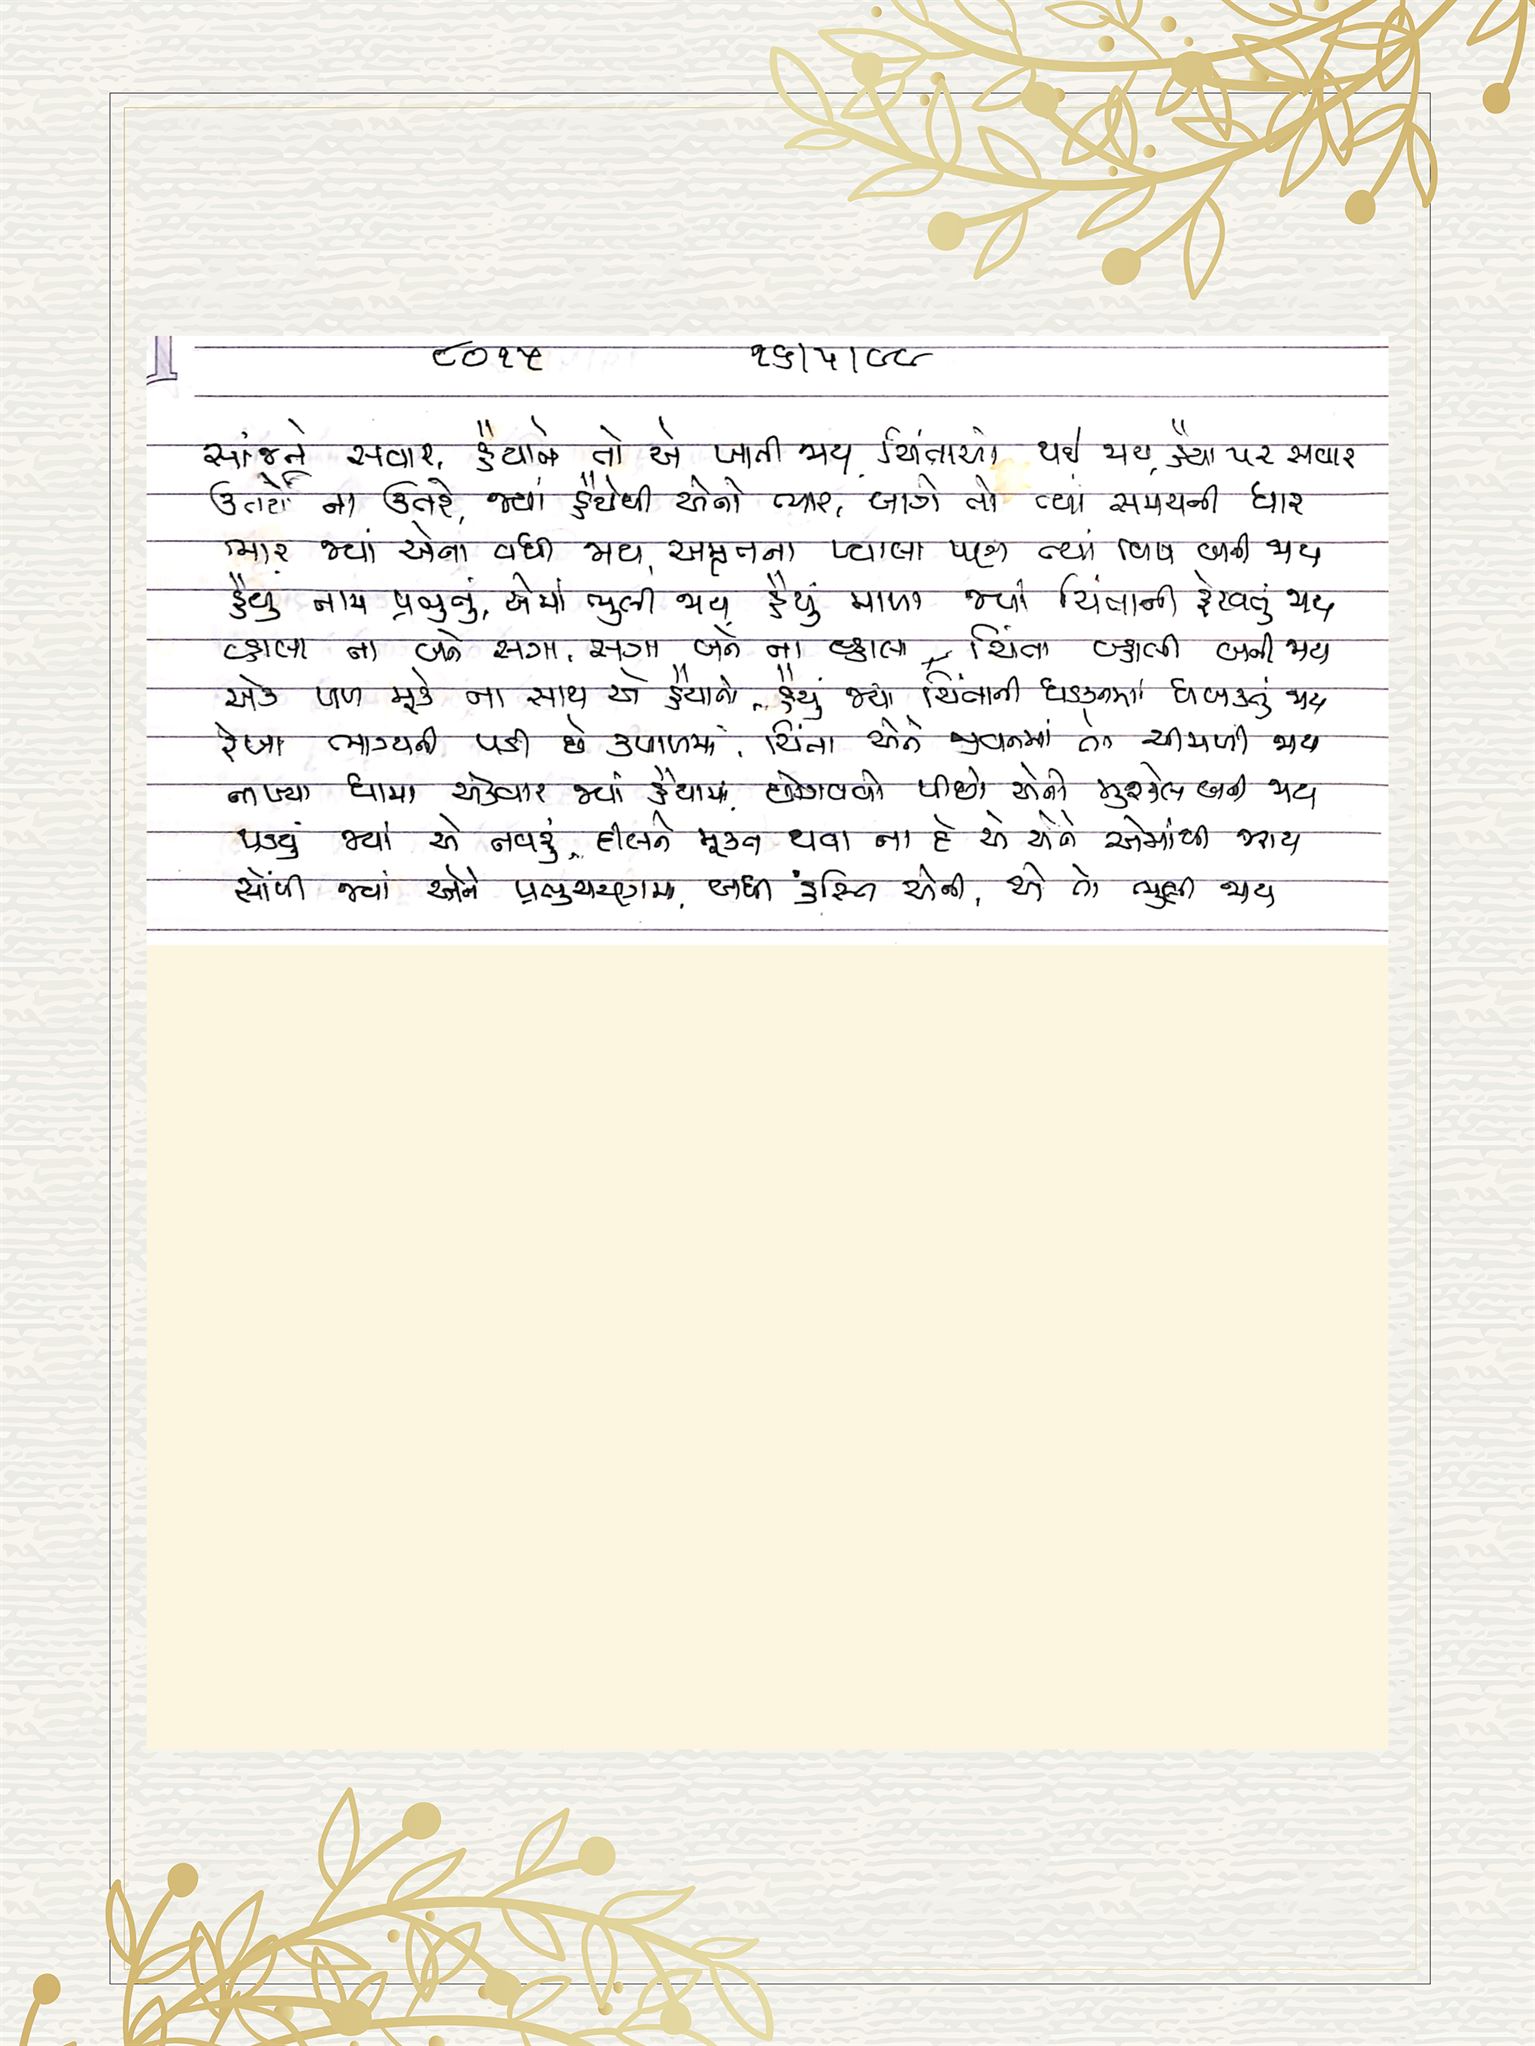 ૮૦૧૫ ૧૬/૫/૯૯
સાંજને સવાર, હૈયાને તો એ ખાતી જાય, ચિંતાઓ થઈ જાય, હૈયા પર સવાર
ઉતારી ના ઉતરે, જ્યાં હૈયેથી એનો ભાર, લાગે તો ત્યાં સમયની ધાર
ભાર જ્યાં એના વધી જાય, અમૃતના પ્યાલા પણ ત્યાં વિષ બની જાય
હૈયું નામ પ્રભુનું, એમાં ભુલી જાય, હૈયું માળા જ્યાં ચિંતાની ફેરવતું જાય
વ્હાલા ના બને સગા, સગા બને ના વ્હાલા, ચિંતા વ્હાલી બની જાય
એક પળ મૂકે ના સાથ એ હૈયાનો, હૈયું જ્યાં ચિંતાની ધડકનમાં ધબકતું જાય
રેખા ભાગ્યની પડી છે કપાળમાં, ચિંતા એને જીવનમાં તો ચીમળી જાય
નાખ્યા ધામા એકવાર જ્યાં હૈયામાં, છોડાવવો પીછો એનો મુશ્કેલ બની જાય
પડયું જ્યાં એ નવરું, દીલને મૂક્ત થવા ના દે એ એને એમાંથી જરાય
સોંપી જ્યાં એને પ્રભુચરણમાં, બધી કુસ્તિ એની, એ તો ભુલી જાય